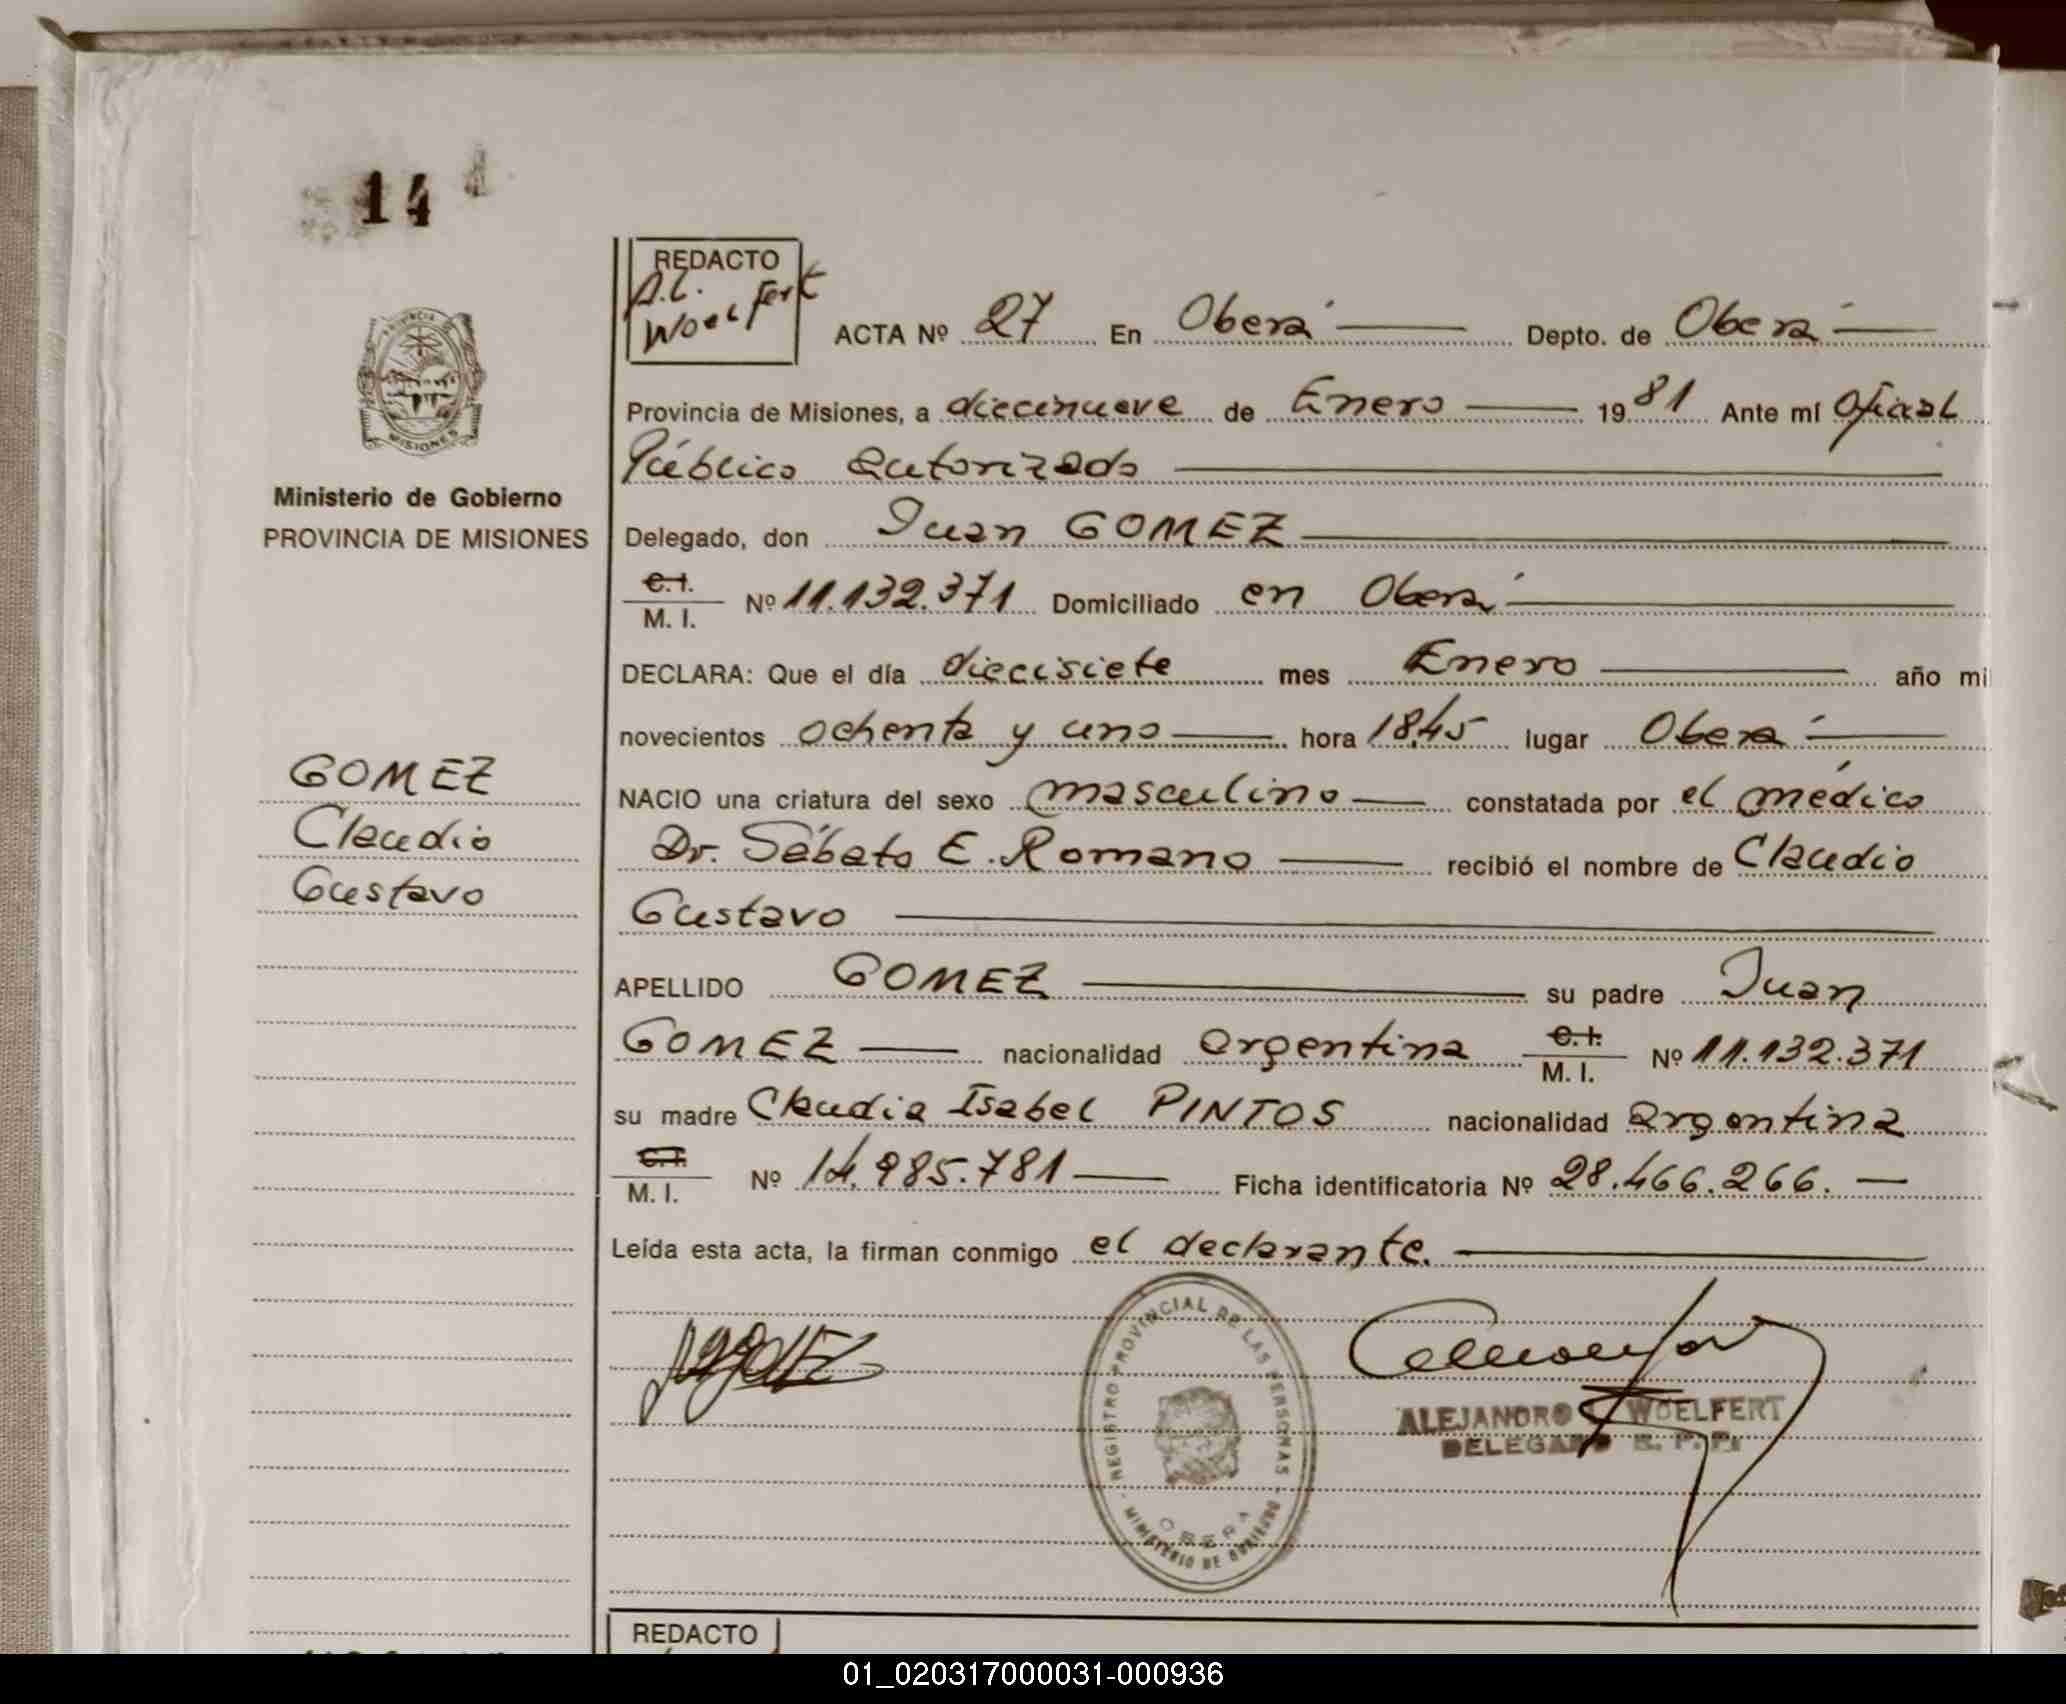 14
REDACTO
A.L.
Woelfert
ACTA Nº 27 En Oberá Depto. de Oberá
Provincia de Misiones, a diecinueve de Enero 1981 Ante mí Oficial
Público autorizado
Delegado, don Juan GOMEZ
C.I.
M. I. Nº 11.132.371 Domiciliado en Oberá
DECLARA: Que el día diecisiete mes Enero año mi
novecientos ochenta y uno hora 18,45 lugar Oberá
NACIO una criatura del sexo masculino constatada por el médico
Dr. Sábato E. Romano recibió el nombre de Claudio
Gustavo
APELLIDO GOMEZ su padre Juan
GOMEZ nacionalidad argentina C.I. M. I. Nº 11.132.371
su madre Claudia Isabel PINTOS nacionalidad argentina
C.I.
M. I. Nº 14.985.781 Ficha identificatoria Nº 28.466.266.
Leída esta acta, la firman conmigo el declarante.
PROVINCIA DE
MISIONES
Ministerio de Gobierno
PROVINCIA DE MISIONES
GOMEZ
Claudio
Gustavo
REGISTRO PROVINCIAL DE LAS PERSONAS
OBERA
MINISTERIO DE GOBIERNO
ALEJANDRO WOELFERT
DELEGADO R. P. P.
REDACTO
01_020317000031-000936